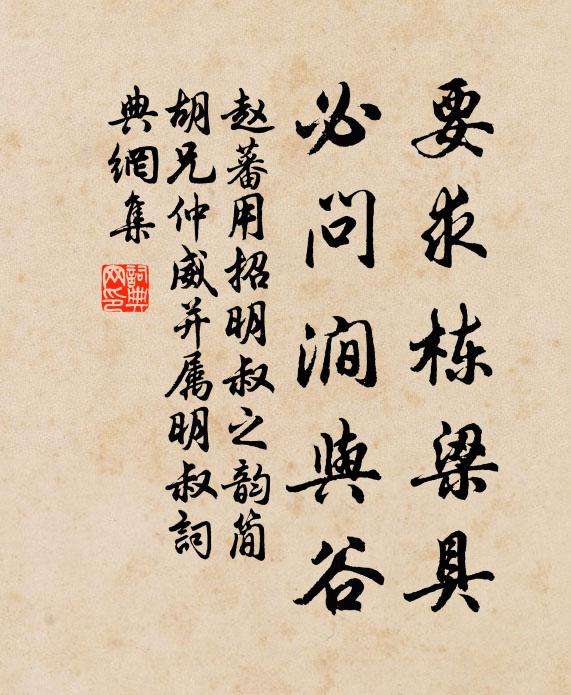 要求栋梁具
必问涧與谷
赵蕃用招明叔之韵简
胡兄仲威并属明叔詞
典網集
詞典网印